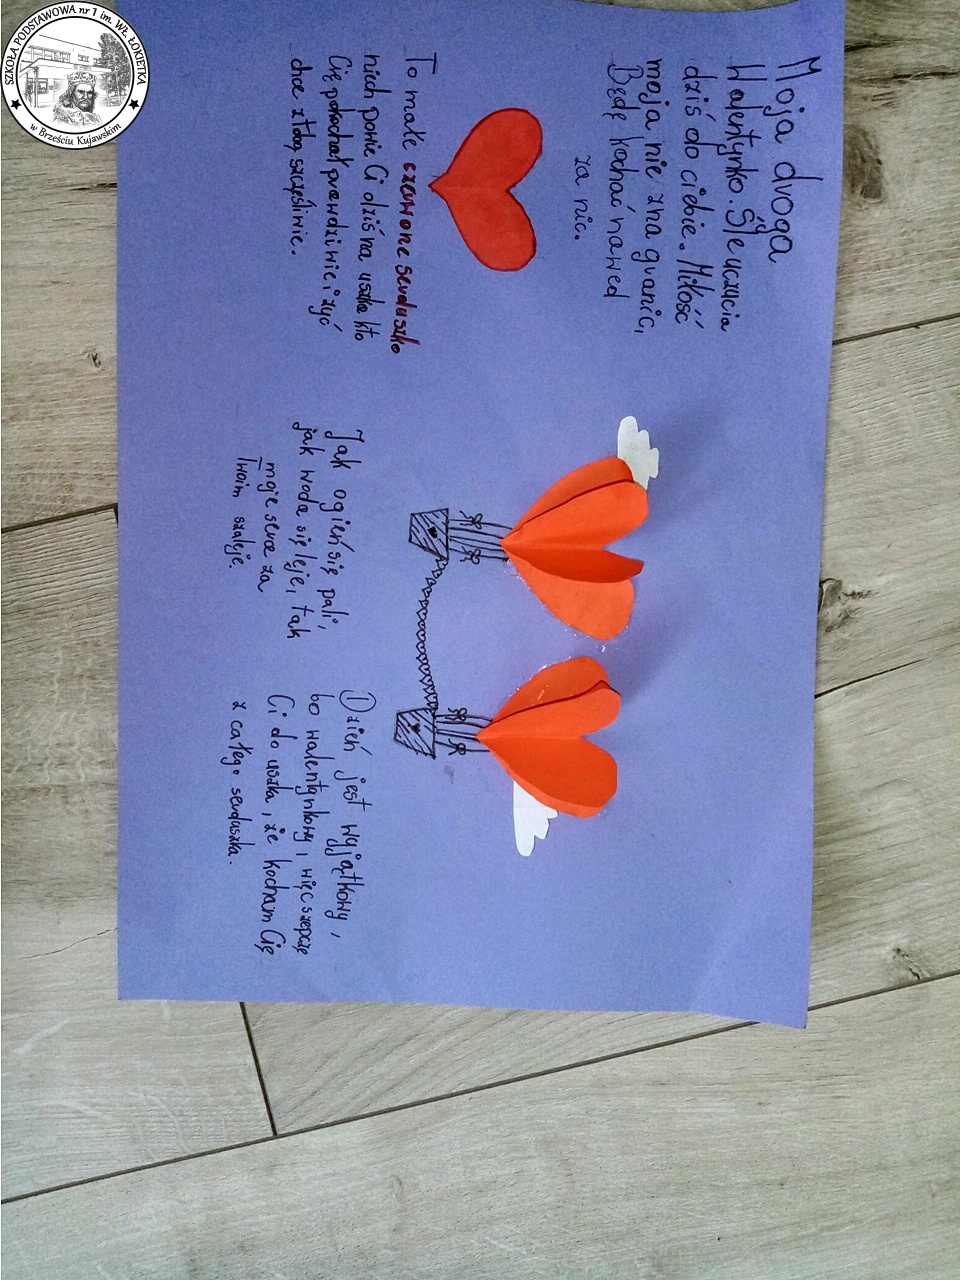 SZKOŁA PODSTAWOWA nr 1 im. WŁ. ŁOKIETKA
w Brześciu Kujawskim
Moja droga
Walentynko. Ślę uczucia
dziś do ciebie. Miłość
moja nie zna granic,
Będę kochać nawed
za nic.
To małe czerwone serduszko
niech powie Ci dziś na uszko kto
Cię pokochał prawdziwie i żyć
chce z tobą szczęśliwie.
Jak ogień się pali,
jak woda się leje, tak
moje serce za
Twoim szaleje.
Dzień jest wyjątkowy,
bo walentynkowy, więc szepczę
Ci do uszka, że kocham Cię
z całego serduszka.